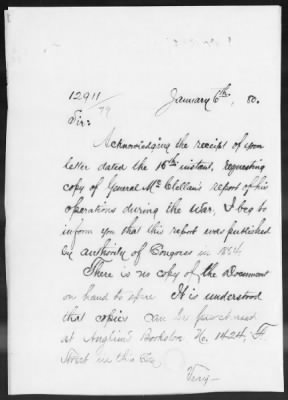 12911
/79
January 6th, 80.
Sir:
Acknowledging the receipt of your
letter dated the 15th instant, requesting
copy of General McClellan's report of his
operations during the war, I beg to
inform you that this report was published
by authority of Congress in 1864.
There is no copy of the Document
on hand to spare It is understood
that copies can be purchased
at Anglim's Bookstore No. 1424, F.
Street in this City
Very